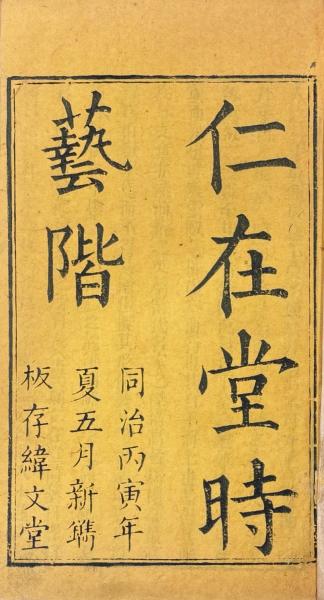 仁在堂時
藝階
同治丙寅年
夏五月新鐫
板存緯文堂